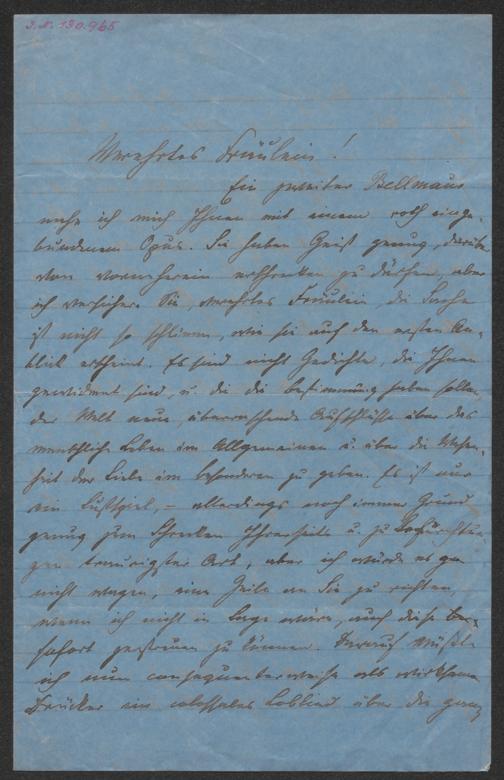 I.N. 190.965
Verehrtes Fräulein!
Ein zweiter Bellmaus
nahe ich mich Ihnen mit einem roth einge-
bundenem Opus. Sie haben Geist genug, darüber
von vornherein erschrecken zu dürfen, aber
ich versichere Sie, verehrtes Fräulein, die Sache
ist nicht so schlimm, wie sie auf den ersten An-
blick erscheint. Es sind nicht Gedichte, die Ihnen
gewidmet sind, u. die die Bestimmung haben sollen,
der Welt neue, überraschende Aufschlüsse über das
menschliche Leben im Allgemeinen u. über die
heit der Liebe im besonderen zu geben. Es ist nur
ein Lustspiel, – allerdings noch immer Grund
genug zum Schrecken Ihrerseits u. zu Befürchtun-
gen traurigster Art, aber ich würde es gar
nicht wagen, eine Zeile an Sie zu richten,
wenn ich nicht in Lage wäre, auch diese
sofort zerstreuen zu können. Darauf müßte
ich nun consequenterweise als
Drücker ein colossales Loblied über die ganz